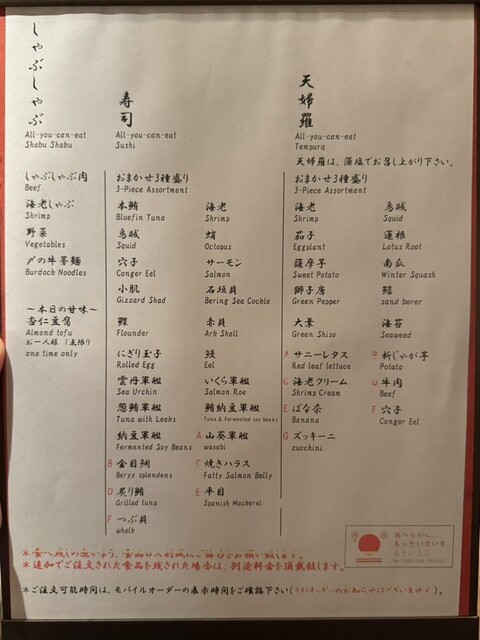 しゃぶしゃぶ
All-you-can-eat
Shabu Shabu
しゃぶしゃぶ肉
Beef
海老しゃぶ
Shrimp
野菜
Vegetables
〆の牛蒡麺
Burdock Noodles
～本日の甘味～
杏仁豆腐
Almond tofu
お一人様 1点限り
one time only
寿司
All-you-can-eat
Sushi
おまかせ3種盛り
3-Piece Assortment
本鮪
Bluefin Tuna
海老
Shrimp
烏賊
Squid
蛸
Octopus
穴子
Conger Eel
サーモン
Salmon
小肌
Gizzard Shad
石垣貝
Bering Sea Cockle
鰈
Flounder
赤貝
Ark Shell
にぎり玉子
Rolled Egg
鰻
Eel
雲丹軍艦
Sea Urchin
いくら軍艦
Salmon Roe
葱鮪軍艦
Tuna with Leeks
鮪納豆軍艦
Tuna & Fermented soy beans
納豆軍艦
Fermented Soy Beans
A 山葵軍艦
wasabi
B 金目鯛
Beryx splendens
C 焼きハラス
Fatty Salmon Belly
D 炙り鮪
Grilled tuna
E 平目
Spanish Mackerel
F つぶ貝
whelk
天婦羅
All-you-can-eat
Tempura
天婦羅は、藻塩でお召し上がり下さい。
おまかせ3種盛り
3-Piece Assortment
海老
Shrimp
烏賊
Squid
茄子
Eggplant
蓮根
Lotus Root
薩摩芋
Sweet Potato
南瓜
Winter Squash
獅子唐
Green Pepper
鱚
sand borer
大葉
Green Shiso
海苔
Seaweed
A サニーレタス
Red leaf lettuce
新じゃが芋
Potato
C 海老クリーム
Shrimp Cream
牛肉
Beef
E ばな奈
Banana
F 穴子
Conger Eel
G ズッキーニ
zucchini
食べるのに、
もったいないを
※追加でご注文された食品を残された場合は、別途料金を頂戴致します。
※ご注文可能時間は、モバイルオーダーの表示時間をご確認下さい(ラストオーダーのお知らせはございません)。